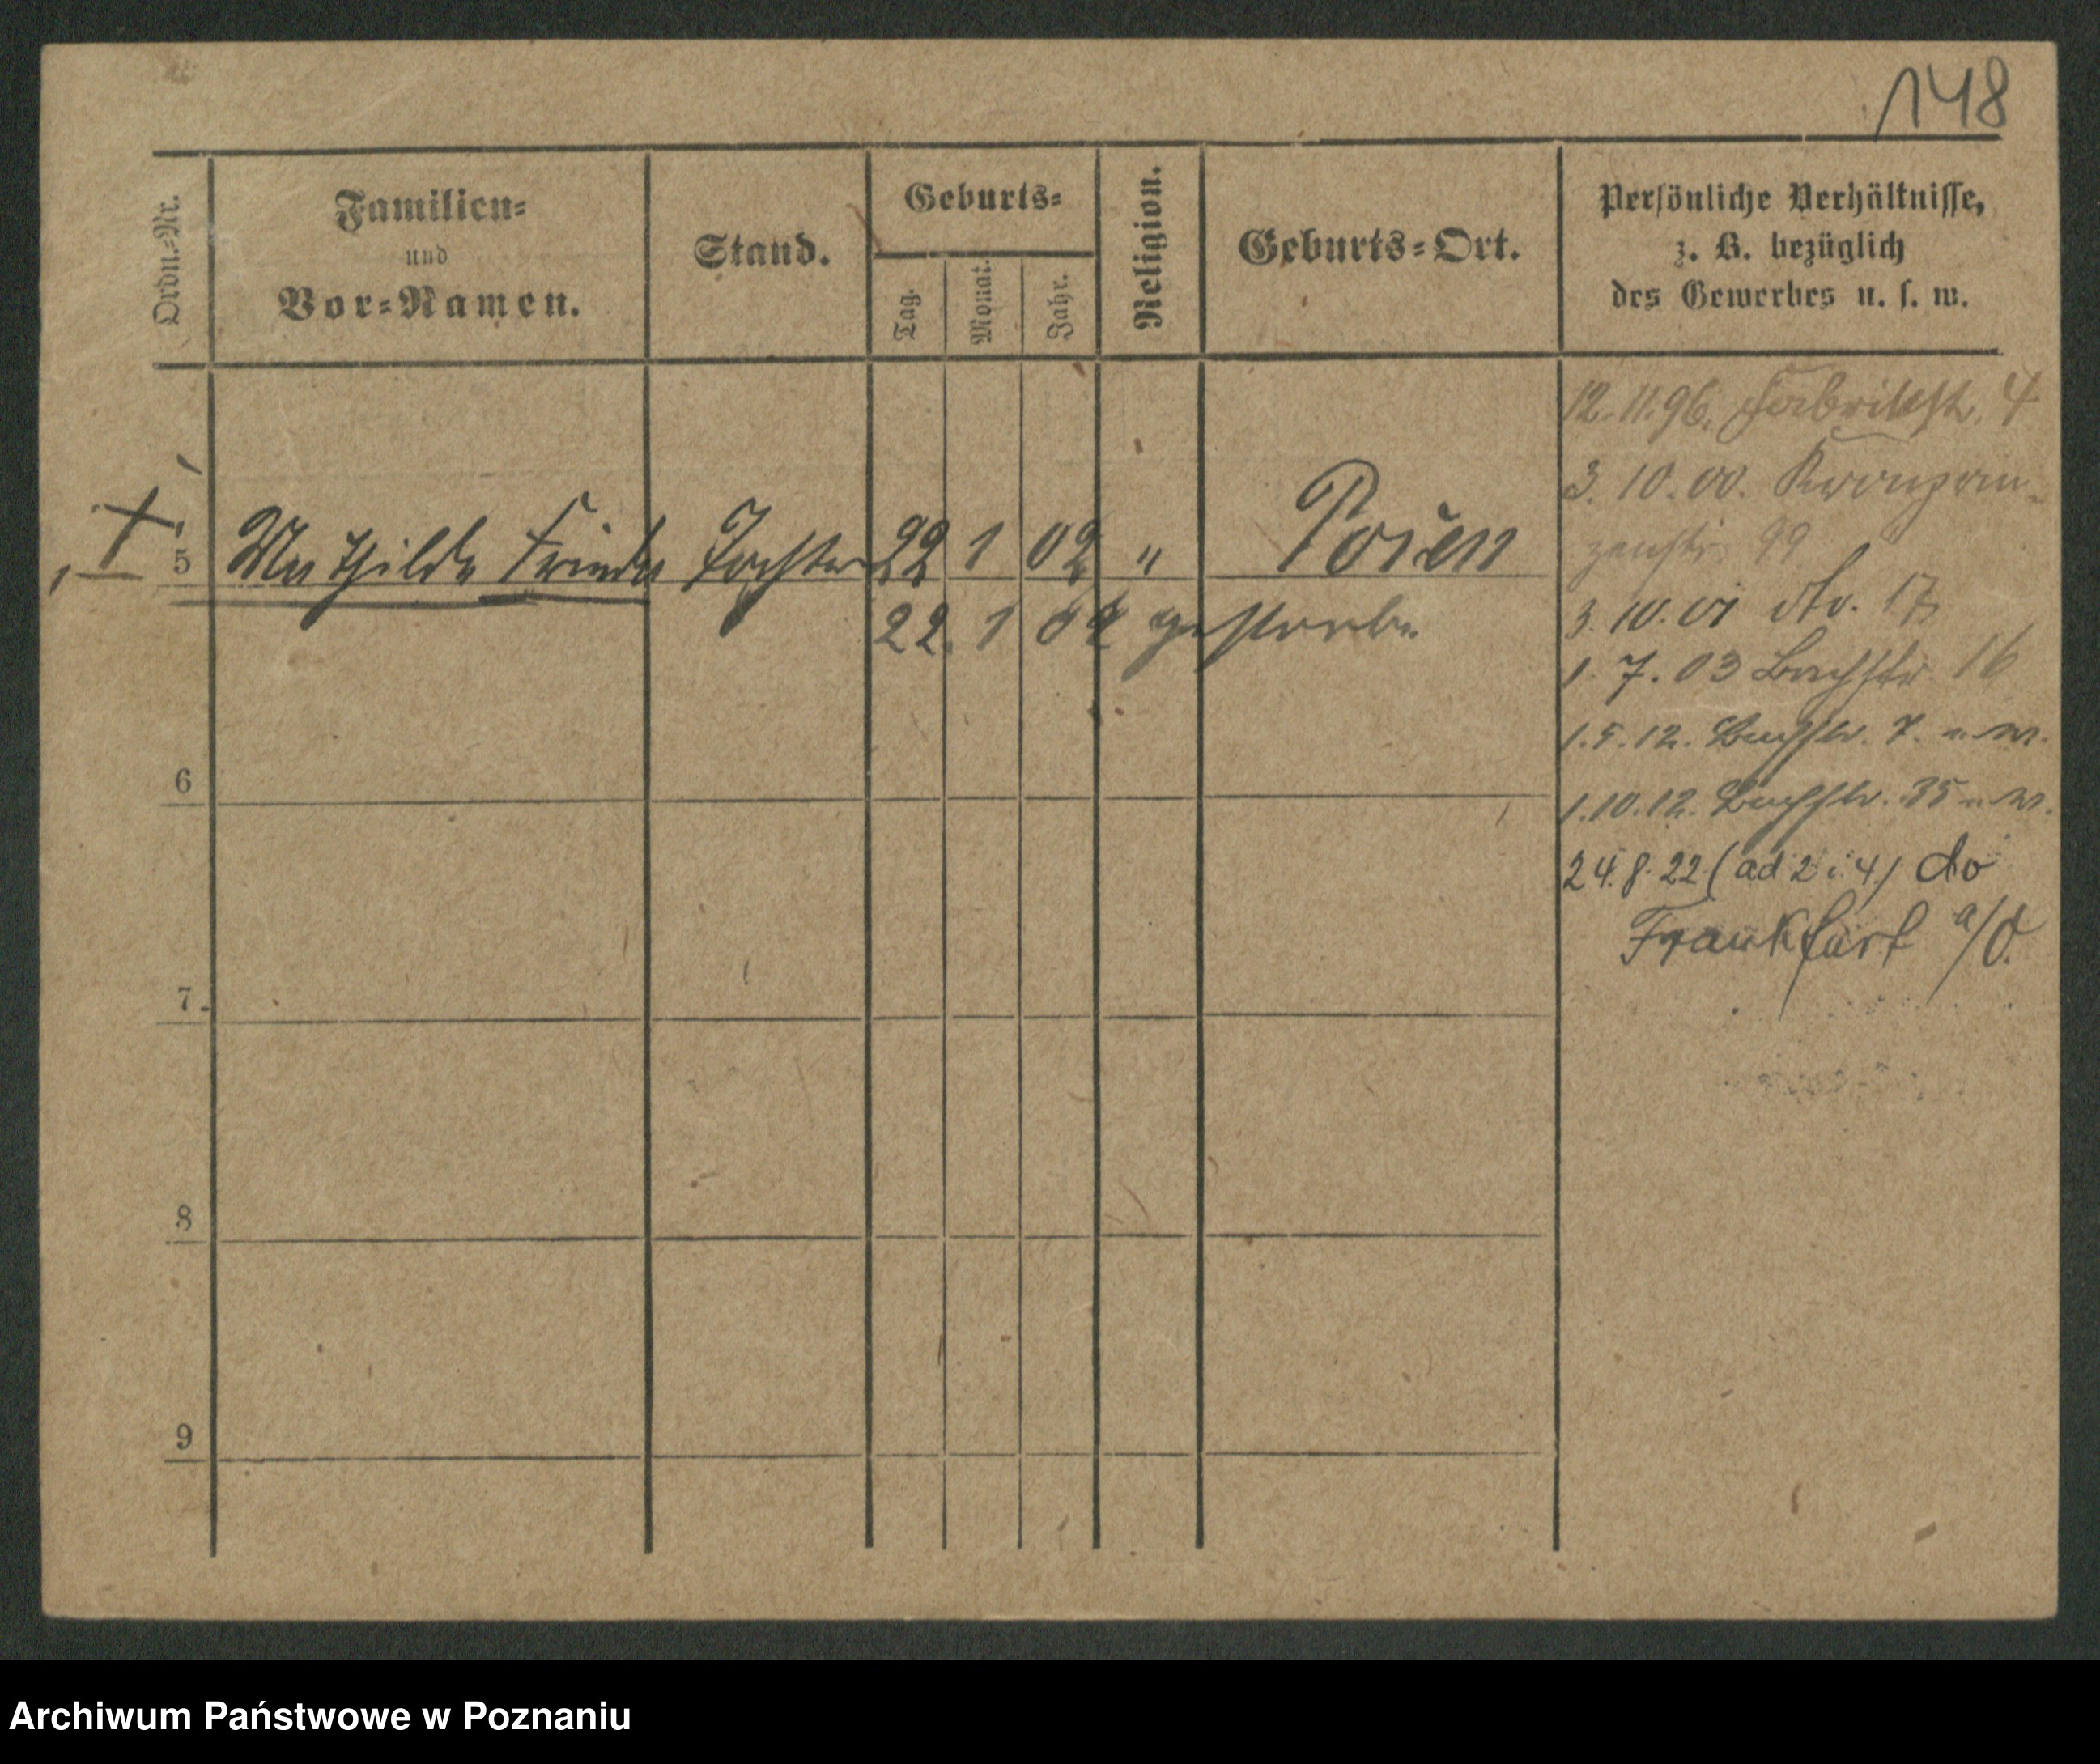 148
Ordn.=Nr.
Familien=
und
Vor=Namen.
Stand.
Geburts=
Tag.
Monat.
Jahr.
Religion.
Geburts=Ort.
Persönliche Verhältnisse,
z. B. bezüglich
des Gewerbes u. s. w.
12.11.96. Fabrikstr. 4
3. 10. 00. Kronprin-
zenstr. 99
5 Mathilde Frieda Tochter 22 1 02 " Posen
3. 10. 01 dto. 17
22. 1 04 gestorben
1. 7. 03 Bachstr. 16
1. 5. 12. Buchstr. 7.
6
1.10.12. Buchstr. 35
24.8.22 (ad 2 i 4) do
Frankfurt a/O.
7
8
9
Archiwum Państwowe w Poznaniu